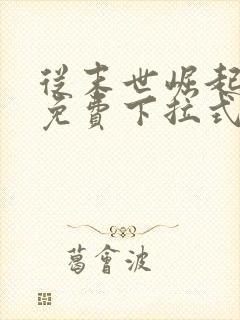 從末世崛起
免費下拉式
葛會波